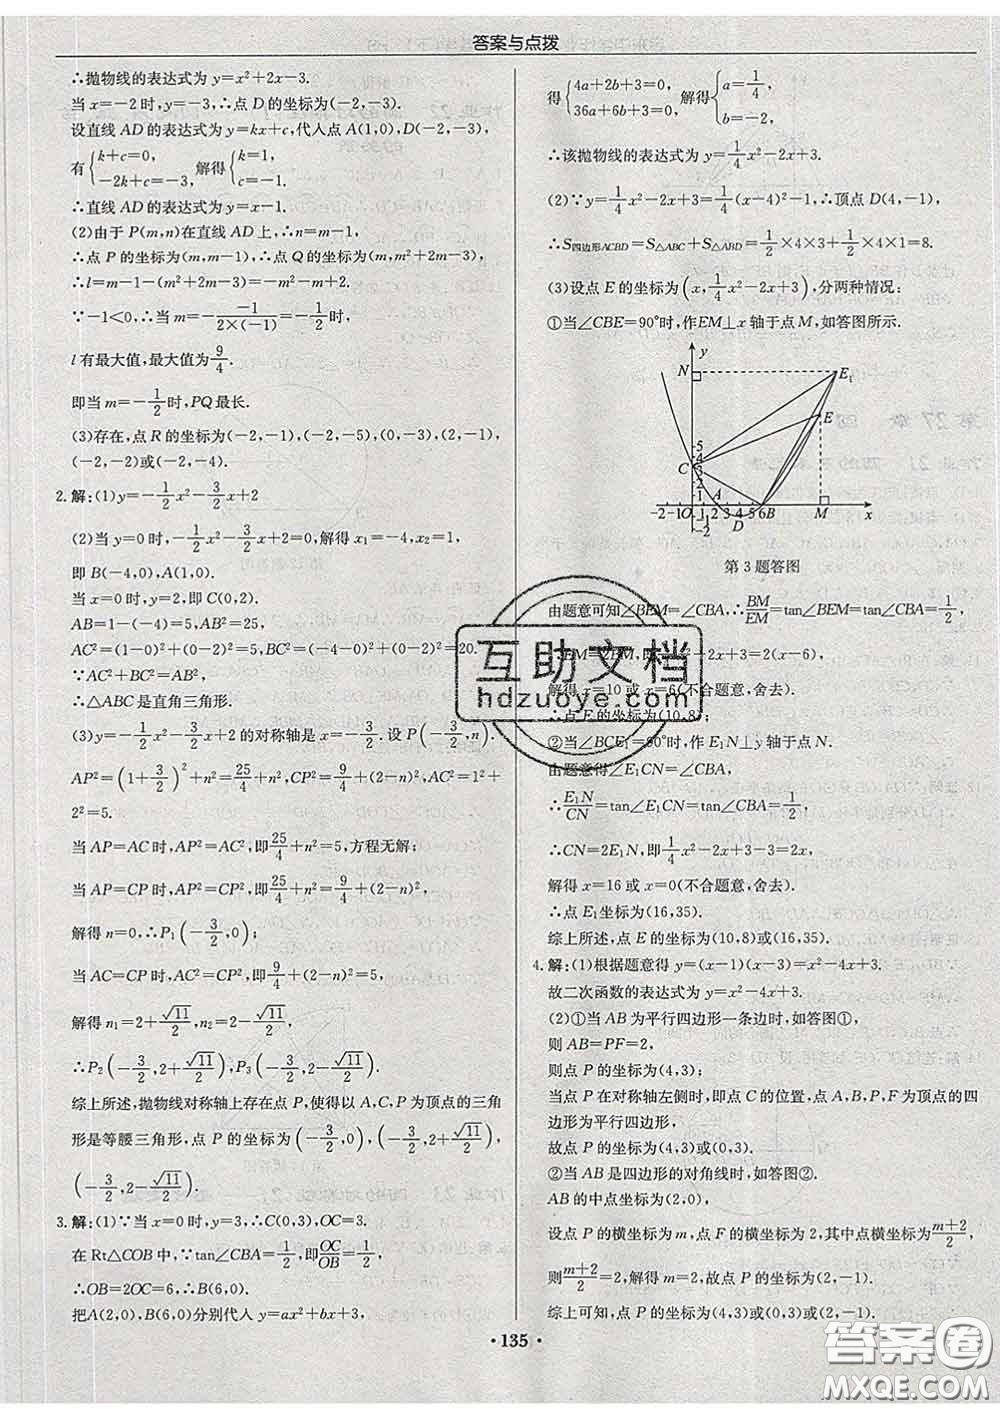 答案与点拨
∴抛物线的表达式为 y=x²+2x-3.
当 x=-2 时,y=-3,∴点 D 的坐标为(-2,-3).
设直线 AD 的表达式为 y=kx+c,代人点 A(1,0),D(-2,-3),
有{k+c=0, -2k+c=-3, 解得{k=1, c=-1.
∴直线 AD 的表达式为 y=x-1.
(2)由于 P(m,n)在直线 AD 上,∴n=m-1,
∴点 P 的坐标为(m,m-1),∴点 Q 的坐标为(m,m²+2m-3).
∴l=m-1-(m²+2m-3)=-m²-m+2.
∵-1<0,∴当 m=-\frac{-1}{2×(-1)}=-\frac{1}{2}时,
l 有最大值,最大值为\frac{9}{4}.
即当 m=-\frac{1}{2}时,PQ 最长.
(3)存在,点 R 的坐标为(-2,-1),(-5,0),(-3,0),(2,-1),
(-2,-2)或(-2,-4).
2. 解:(1)y=-\frac{1}{2}x²-\frac{3}{2}x+2
(2)当 y=0 时,-\frac{1}{2}x²-\frac{3}{2}x+2=0,解得 x₁=-4,x₂=1,
即 B(-4,0),A(1,0).
当 x=0 时,y=2,即 C(0,2).
AB=1-(-4)=5,AB²=25,
AC²=(1-0)²+(0-2)²=5,BC²=(-4-0)²+(0-2)²=20.
∵AC²+BC²=AB²,
∴△ABC 是直角三角形.
(3)y=-\frac{1}{2}x²-\frac{3}{2}x+2 的对称轴是 x=-\frac{3}{2}. 设 P(-\frac{3}{2},n).
AP²=(1+\frac{3}{2})²+n²=\frac{25}{4}+n²,CP²=\frac{9}{4}+(2-n)²,AC²=1²+
2²=5.
当 AP=AC 时,AP²=AC²,即\frac{25}{4}+n²=5,方程无解;
当 AP=CP 时,AP²=CP²,即\frac{25}{4}+n²=\frac{9}{4}+(2-n)²,
解得 n=0,∴P₁(-\frac{3}{2},0);
当 AC=CP 时,AC²=CP²,即\frac{9}{4}+(2-n)²=5,
解得 n₁=2+\frac{√11}{2},n₂=2-\frac{√11}{2},
∴P₂(-\frac{3}{2},2+\frac{√11}{2}),P₃(-\frac{3}{2},2-\frac{√11}{2}).
综上所述,抛物线对称轴上存在点 P,使得以 A,C,P 为顶点的三角
形是等腰三角形,点 P 的坐标为(-\frac{3}{2},0),(-\frac{3}{2},2+\frac{√11}{2}),
(-\frac{3}{2},2-\frac{√11}{2}).
3. 解:(1)∵当 x=0 时,y=3,∴C(0,3),OC=3.
在 Rt△COB 中,∵tan∠CBA=\frac{1}{2},即\frac{OC}{OB}=\frac{1}{2},
∴OB=2OC=6,∴B(6,0).
把A(2,0),B(6,0)分别代人 y=ax²+bx+3,
得{4a+2b+3=0, 36a+6b+3=0, 解得{a=\frac{1}{4}, b=-2.
∴该抛物线的表达式为 y=\frac{1}{4}x²-2x+3.
(2)∵y=\frac{1}{4}x²-2x+3=\frac{1}{4}(x-4)²-1,∴顶点 D(4,-1),
∴S四边形ACBD=S△ABC+S△ABD=\frac{1}{2}×4×3+\frac{1}{2}×4×1=8.
(3)设点 E 的坐标为(x,\frac{1}{4}x²-2x+3),分两种情况:
①当∠CBE=90°时,作EM⊥x 轴于点 M,如答图所示.
y
N
E₁
E
5
4
C 3
2
1
A
-2 -1 O 1 2 3 4 5 6B M x
D
-2
第 3 题答图
由题意可知∠BEM=∠CBA,∴\frac{BM}{EM}=tan∠BEM=tan∠CBA=\frac{1}{2},
∴EM=2BM,即\frac{1}{4}x²-2x+3=2(x-6),
解得 x=10 或 x=6(不合题意,舍去).
∴点 E 的坐标为(10,8);
②当∠BCE₁=90°时,作 E₁N⊥y 轴于点 N.
由题意得∠E₁CN=∠CBA,
∴\frac{E₁N}{CN}=tan∠E₁CN=tan∠CBA=\frac{1}{2},
∴CN=2E₁N,即\frac{1}{4}x²-2x+3-3=2x,
解得 x=16 或 x=0(不合题意,舍去).
∴点 E₁坐标为(16,35).
综上所述,点 E 的坐标为(10,8)或(16,35).
4. 解:(1)根据题意得 y=(x-1)(x-3)=x²-4x+3.
故二次函数的表达式为 y=x²-4x+3.
(2)①当 AB为平行四边形一条边时,如答图①,
则 AB=PF=2,
则点 P 的坐标为(4,3);
当点 P 在对称轴左侧时,即点 C 的位置,点 A,B,P,F 为顶点的四
边形为平行四边形,
故点 P 的坐标为(4,3)或(0,3).
②当 AB 是四边形的对角线时,如答图②.
AB 的中点坐标为(2,0),
设点 P 的横坐标为 m,点 F 的横坐标为 2,其中点横坐标为\frac{m+2}{2},
则\frac{m+2}{2}=2,解得 m=2,故点 P 的坐标为(2,-1).
综上可知,点 P 的坐标为(4,3)或(0,3)或(2,-1).
• 135 •
互助文档
hdzuoye.com
答案圈
MXQE.COM